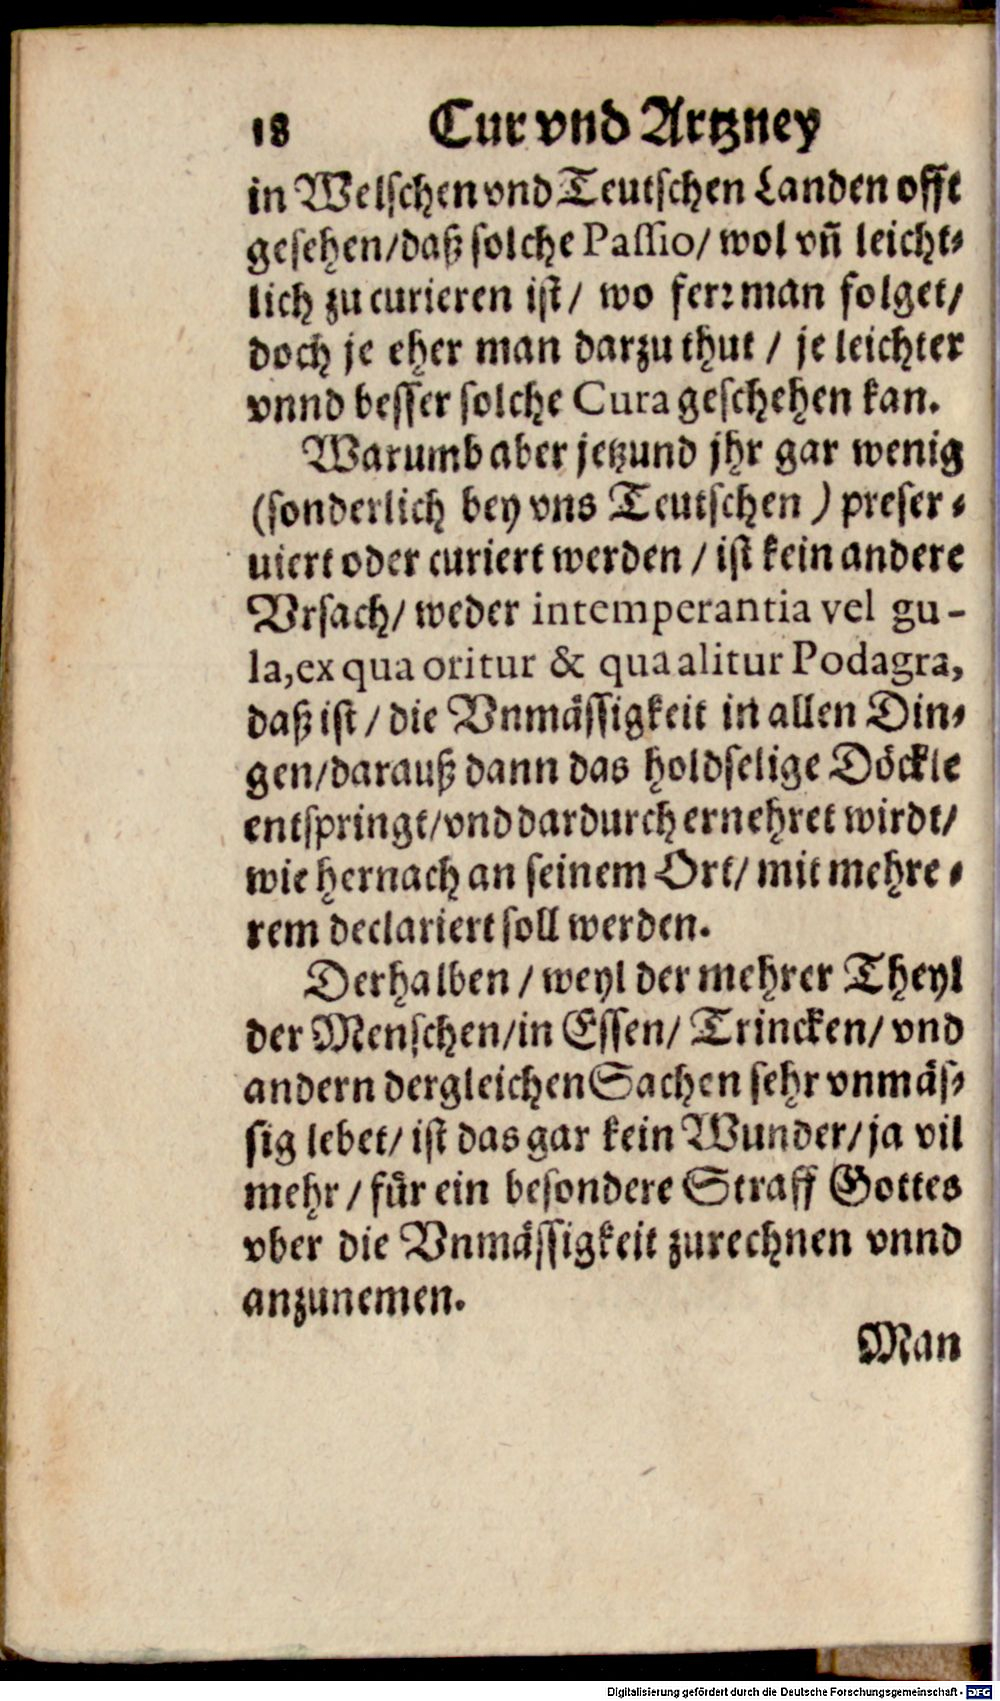 18 Cur vnd Artzney
in Welschen vnd Teutschen Landen offt
gesehen/daß solche Passio/ wol vñ leicht-
lich zu curieren ist/ wo ferꝛ man folget/
doch je eher man darzu thut / je leichter
vnnd besser solche Cura geschehen kan.
Warumb aber jetzund jhr gar wenig
(sonderlich bey vns Teutschen ) preser-
uiert oder curiert werden / ist kein andere
Vrsach/ weder intemperantia vel gu-
la, ex qua oritur & qua alitur Podagra,
daß ist / die Vnmässigkeit in allen Din-
gen/darauß dann das holdselige Döckle
entspringt/vnd dardurch ernehret wirdt/
wie hernach an seinem Ort/ mit mehre-
rem declariert soll werden.
Derhalben / weyl der mehrer Theyl
der Menschen/in Essen/ Trincken/ vnd
andern dergleichen Sachen sehr vnmäs-
sig lebet/ ist das gar kein Wunder/ja vil
mehr / für ein besondere Straff Gottes
vber die Vnmässigkeit zurechnen vnnd
anzunemen.
Man
Digitalisierung gefördert durch die Deutsche Forschungsgemeinschaft - DFG